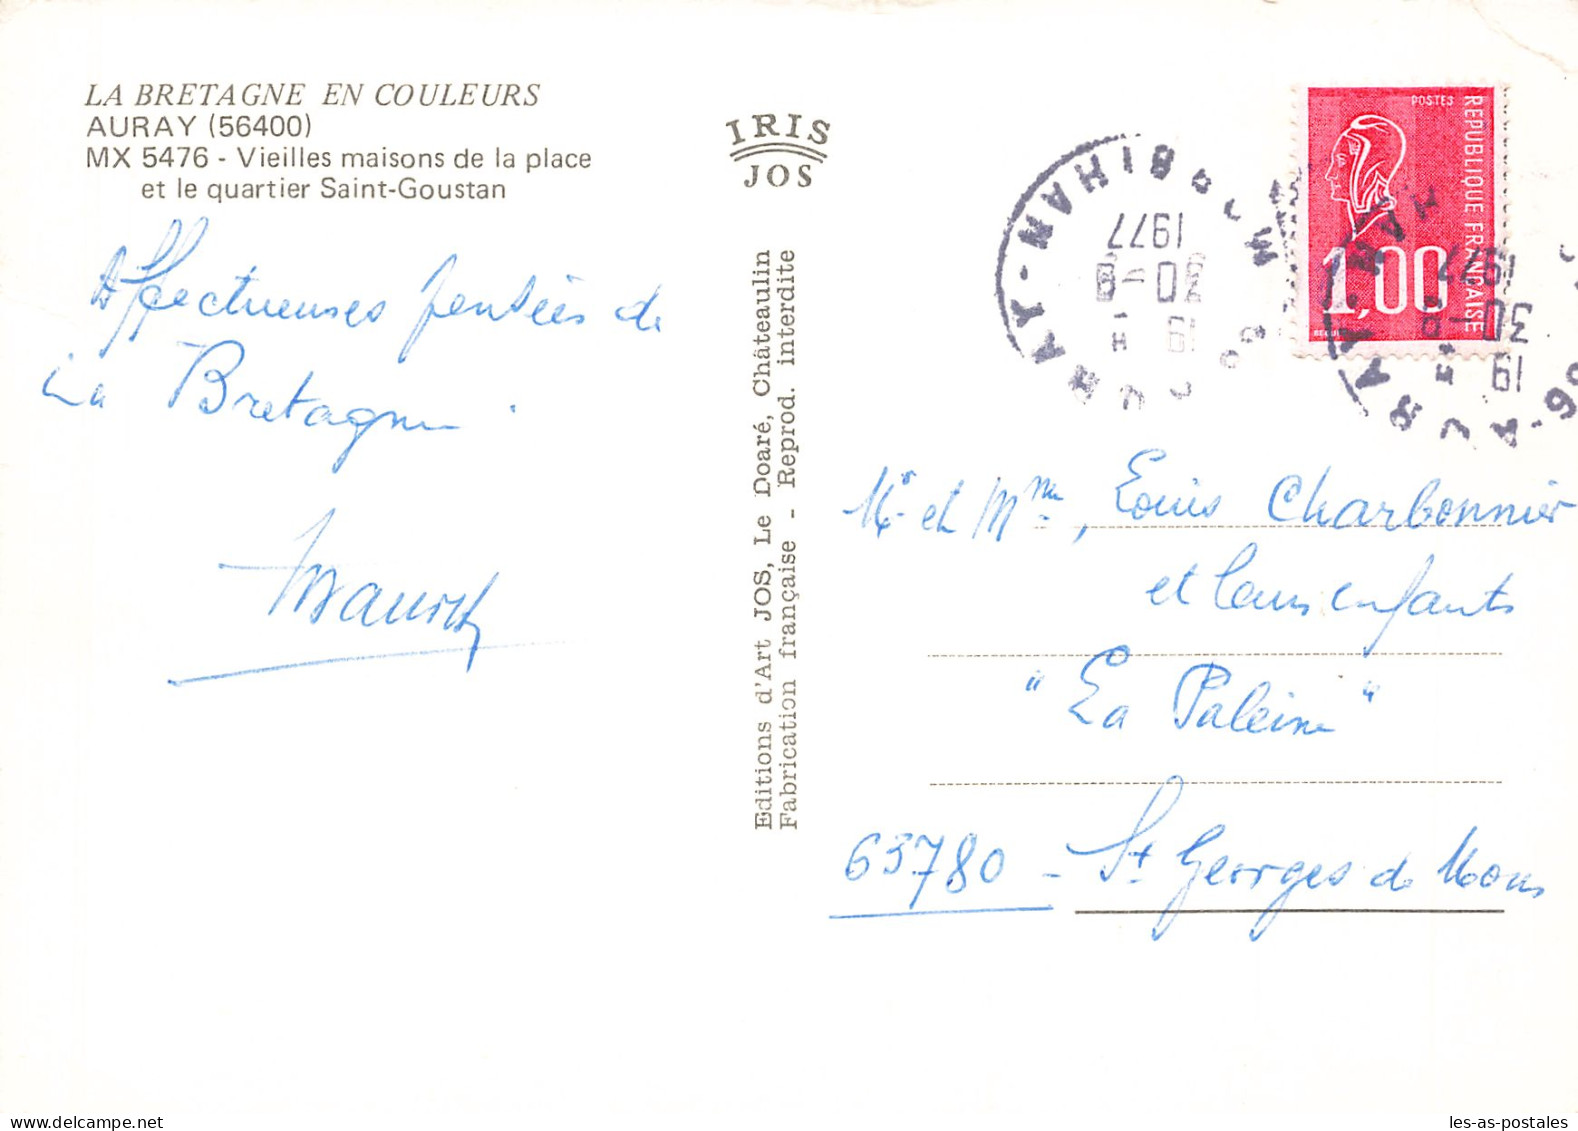 LA BRETAGNE EN COULEURS
AURAY (56400)
MX 5476 - Vieilles maisons de la place
et le quartier Saint-Goustan
Affectueuses pensées de
La Bretagne.
IRIS
JOS
Editions d'Art JOS, Le Doaré, Châteaulin
Fabrication française - Reprod. interdite
POSTES
REPUBLIQUE FRANÇAISE
1,00
AURAY - MORBIHAN
19 H
30-8
1977
AURAY
19 H
30-8
1977
Mr et Mme, Louis Charbonnier
et leurs enfants
"La Paleine"
63780 - St Georges de Mons
delcampe.net
les-as-postales